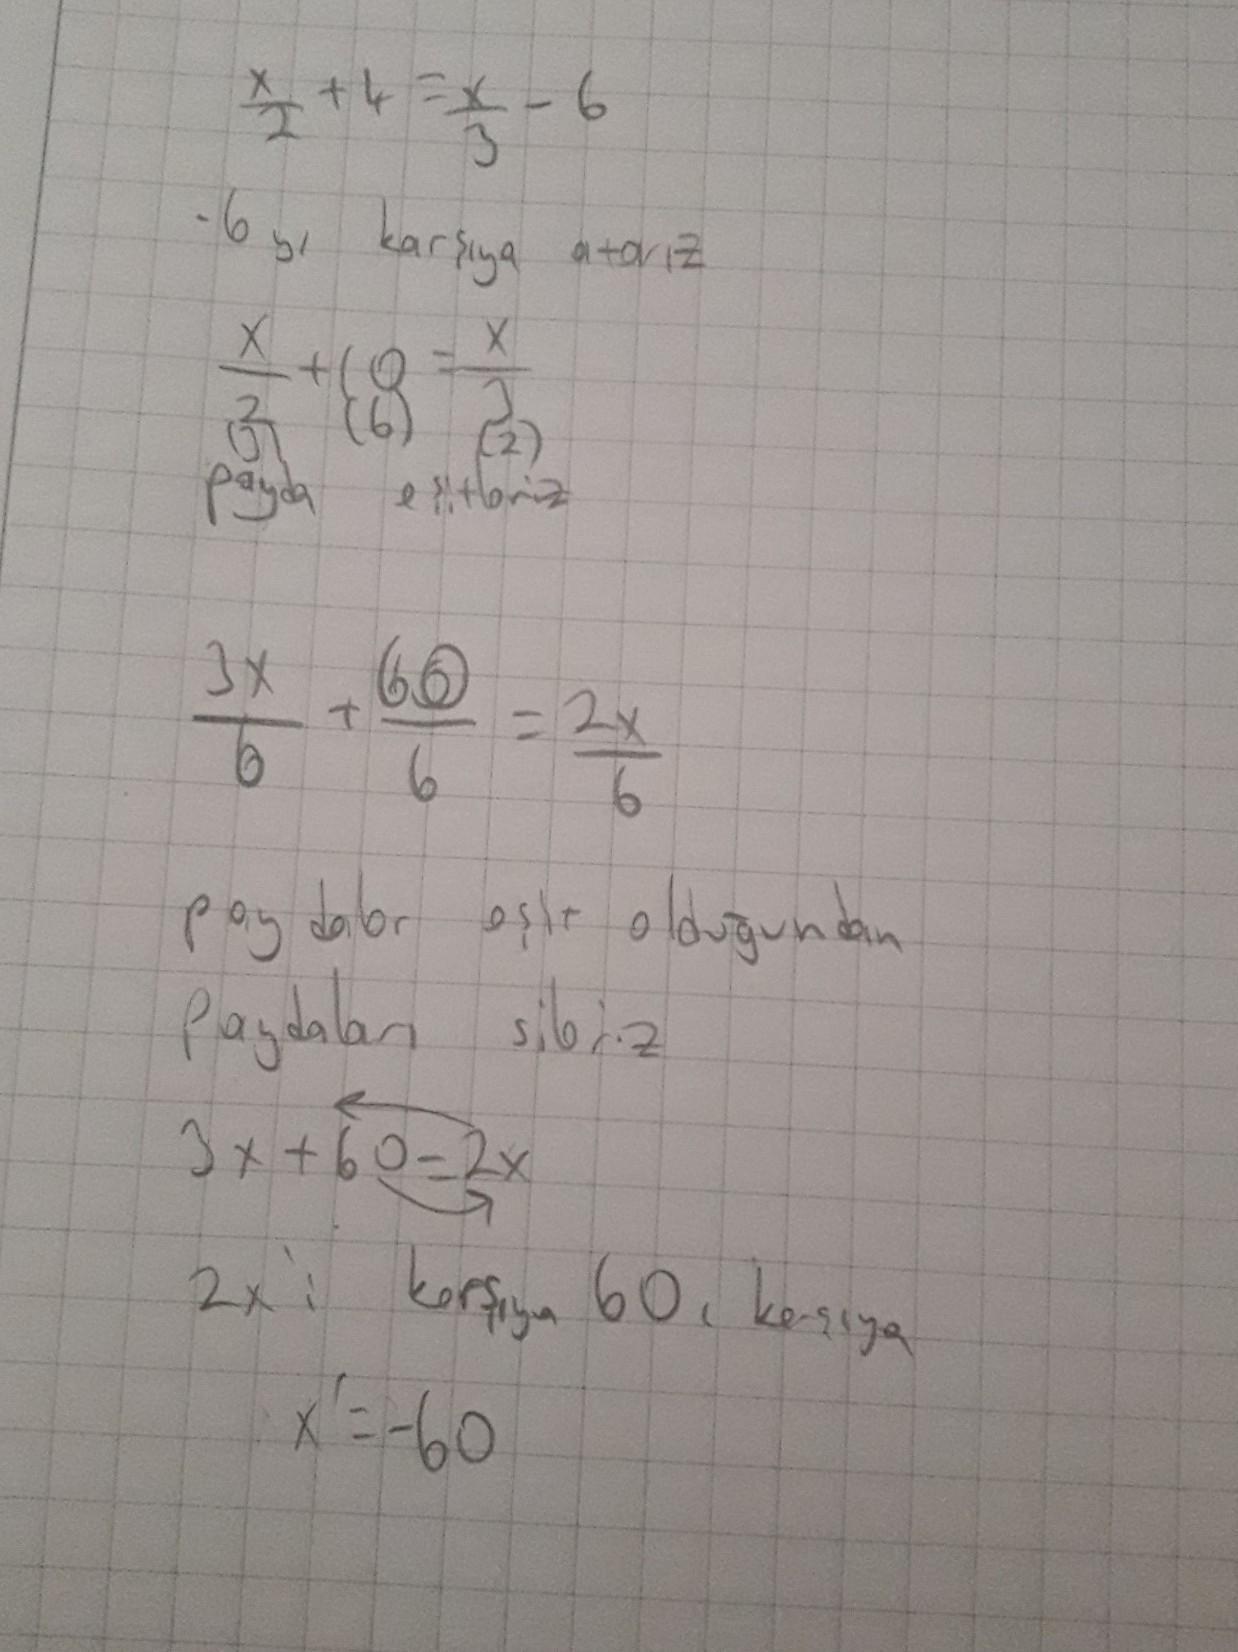 x/2 + 4 = x/3 - 6
-6 yı karşıya atarız
x/2 + 10 = x/3
(3) (6) (2)
payda eşitleriz
3x/6 + 60/6 = 2x/6
paydalar eşit olduğundan
paydaları sileriz
3x + 60 = 2x
2x'i karşıya 60ı karşıya
x = -60